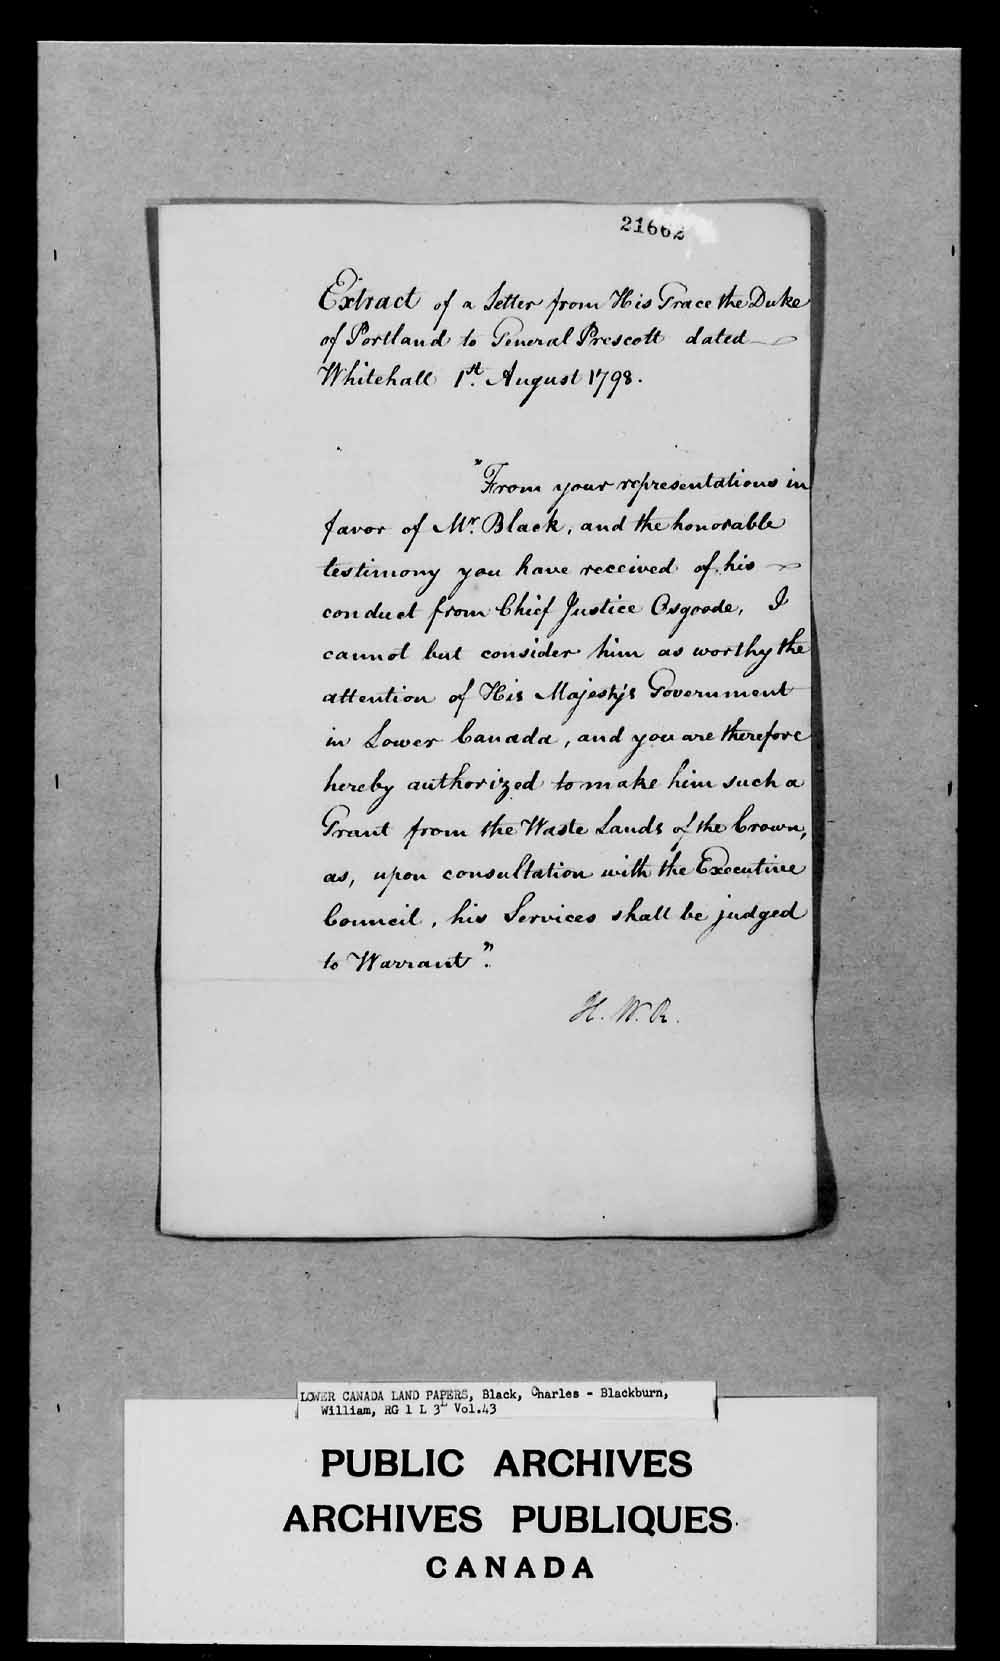 21662
Extract of a Letter from His Grace the Duke
of Portland to General Prescott dated
Whitehall 1st. August 1798.
"From your representations in
favor of Mr. Black, and the honorable
testimony you have received of his
conduct from Chief Justice Osgoode, I
cannot but consider him as worthy the
attention of His Majesty's Government
in Lower Canada, and you are therefore
hereby authorized to make him such a
Grant from the Waste Lands of the Crown,
as, upon consultation with the Executive
Council, his Services shall be judged
to Warrant".
H. W. R.
LOWER CANADA LAND PAPERS, Black, Charles - Blackburn,
William, RG 1 L 3L Vol.43
PUBLIC ARCHIVES
ARCHIVES PUBLIQUES
CANADA